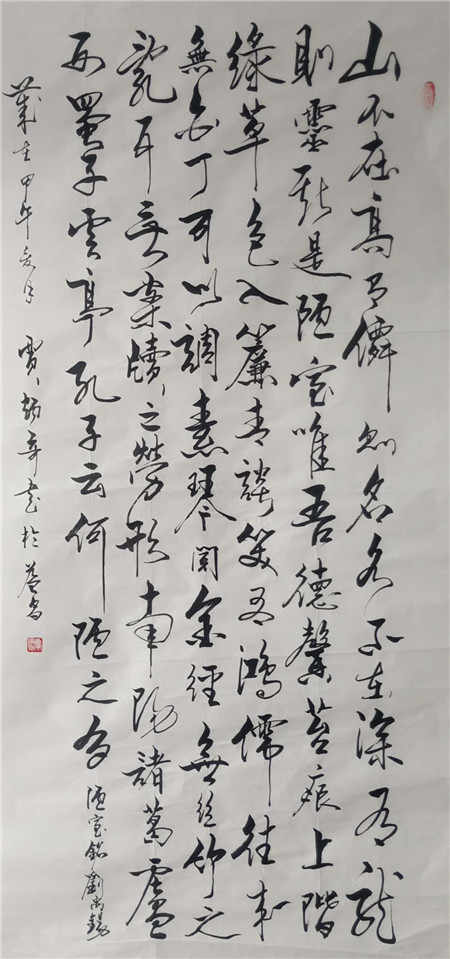 山不在高有僊則名水不在深有龍
則靈斯是陋室唯吾德馨苔痕上階
綠草色入簾青談笑有鴻儒往來
無白丁可以調素琴閱金經無絲竹之
亂耳無案牘之勞形南陽諸葛廬
西蜀子雲亭孔子云何陋之有 陋室銘劉禹錫
歲在甲午夏月 賈炳奇書於